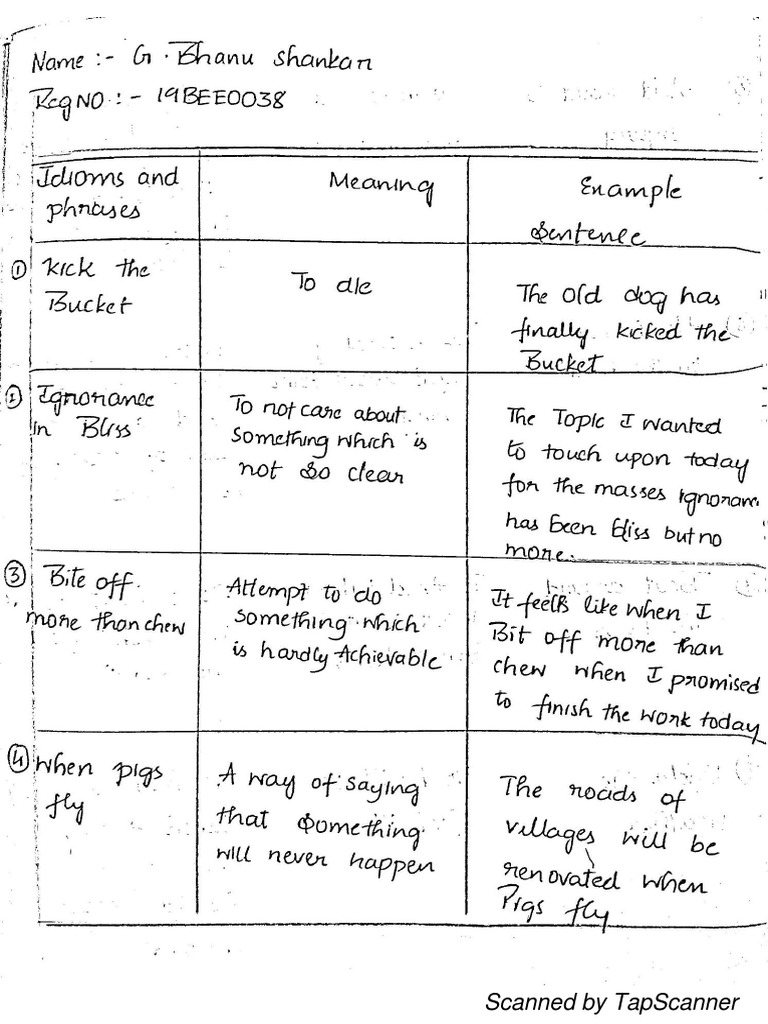 Name :- G. Bhanu Shankar
Reg NO :- 19BEE0038
Idioms and
phrases
Meaning
Example
Sentence
① Kick the
Bucket
To die
The old dog has
finally kicked the
Bucket.
② Ignorance
in Bliss
To not care about
something which is
not so clear
The Topic I wanted
to touch upon today
for the masses ignoranc
has been bliss but no
more.
③ Bite off
more than chew
Attempt to do
something which
is hardly Achievable
It feels like when I
Bit off more than
chew when I promised
to finish the work today
④ When pigs
fly
A way of saying
that something
will never happen
The roads of
villages will be
renovated when
Pigs fly
Scanned by TapScanner